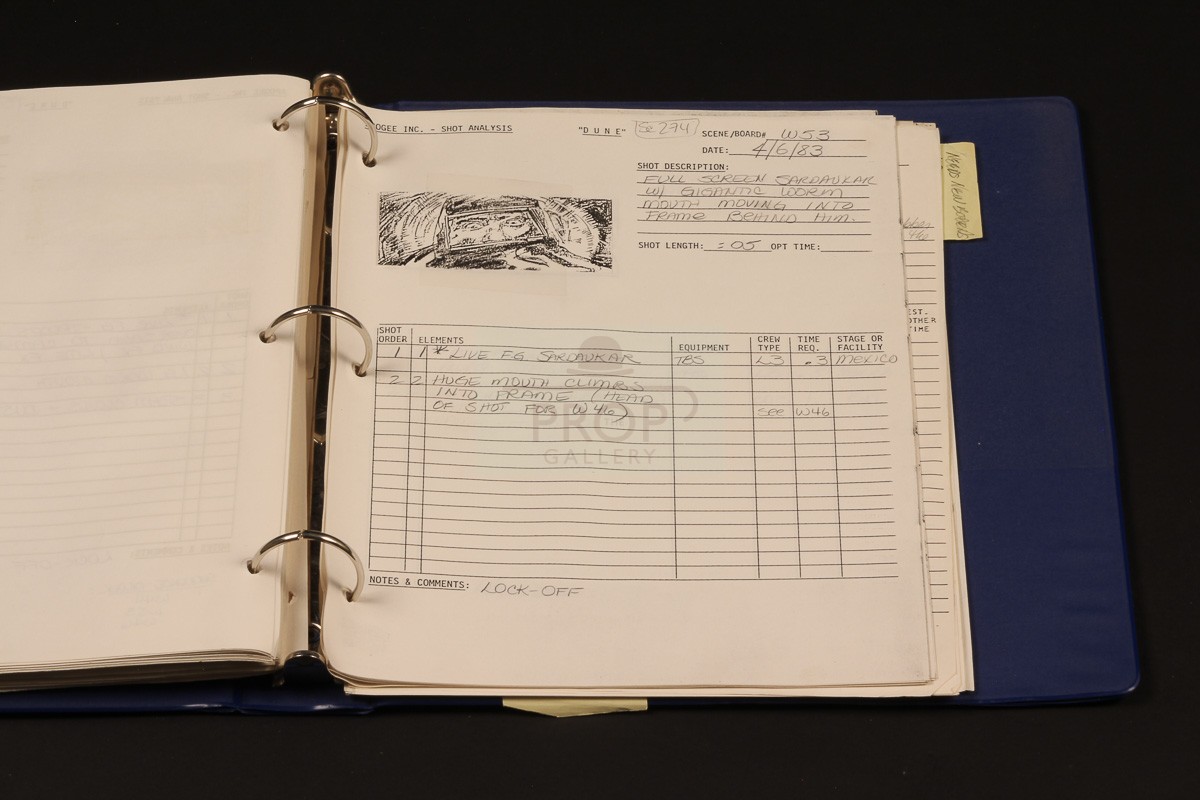 OGEE INC. - SHOT ANALYSIS
"D U N E"
Sc 274
SCENE/BOARD# W53
DATE: 4/6/83
SHOT DESCRIPTION:
FULL SCREEN SARDAUKAR
W/ GIGANTIC WORM
MOUTH MOVING INTO
FRAME BEHIND HIM.
SHOT LENGTH: :05 OPT TIME:
SHOT ORDER ELEMENTS EQUIPMENT CREW TYPE TIME REQ. STAGE OR FACILITY
1 1 *LIVE F.G. SARDAUKAR TBS L3 .3 MEXICO
2 2 HUGE MOUTH CLIMBS
INTO FRAME (HEAD
OF SHOT FOR W46) see W46
NOTES & COMMENTS: LOCK-OFF
PROP
GALLERY
EST.
OTHER
TIME